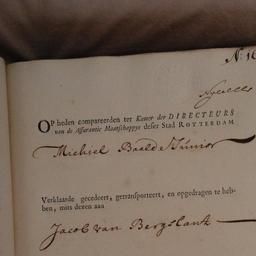 N. 16
Op heden compareerden ter Kamer der DIRECTEURS
van de Assurantie Maatschappye deser Stad ROTTERDAM
Michiel Baelde Junior
Verklaarde gecedeert, getransporteert, en opgedragen te heb-
ben, mits dezen aan
Jacob van Bergs